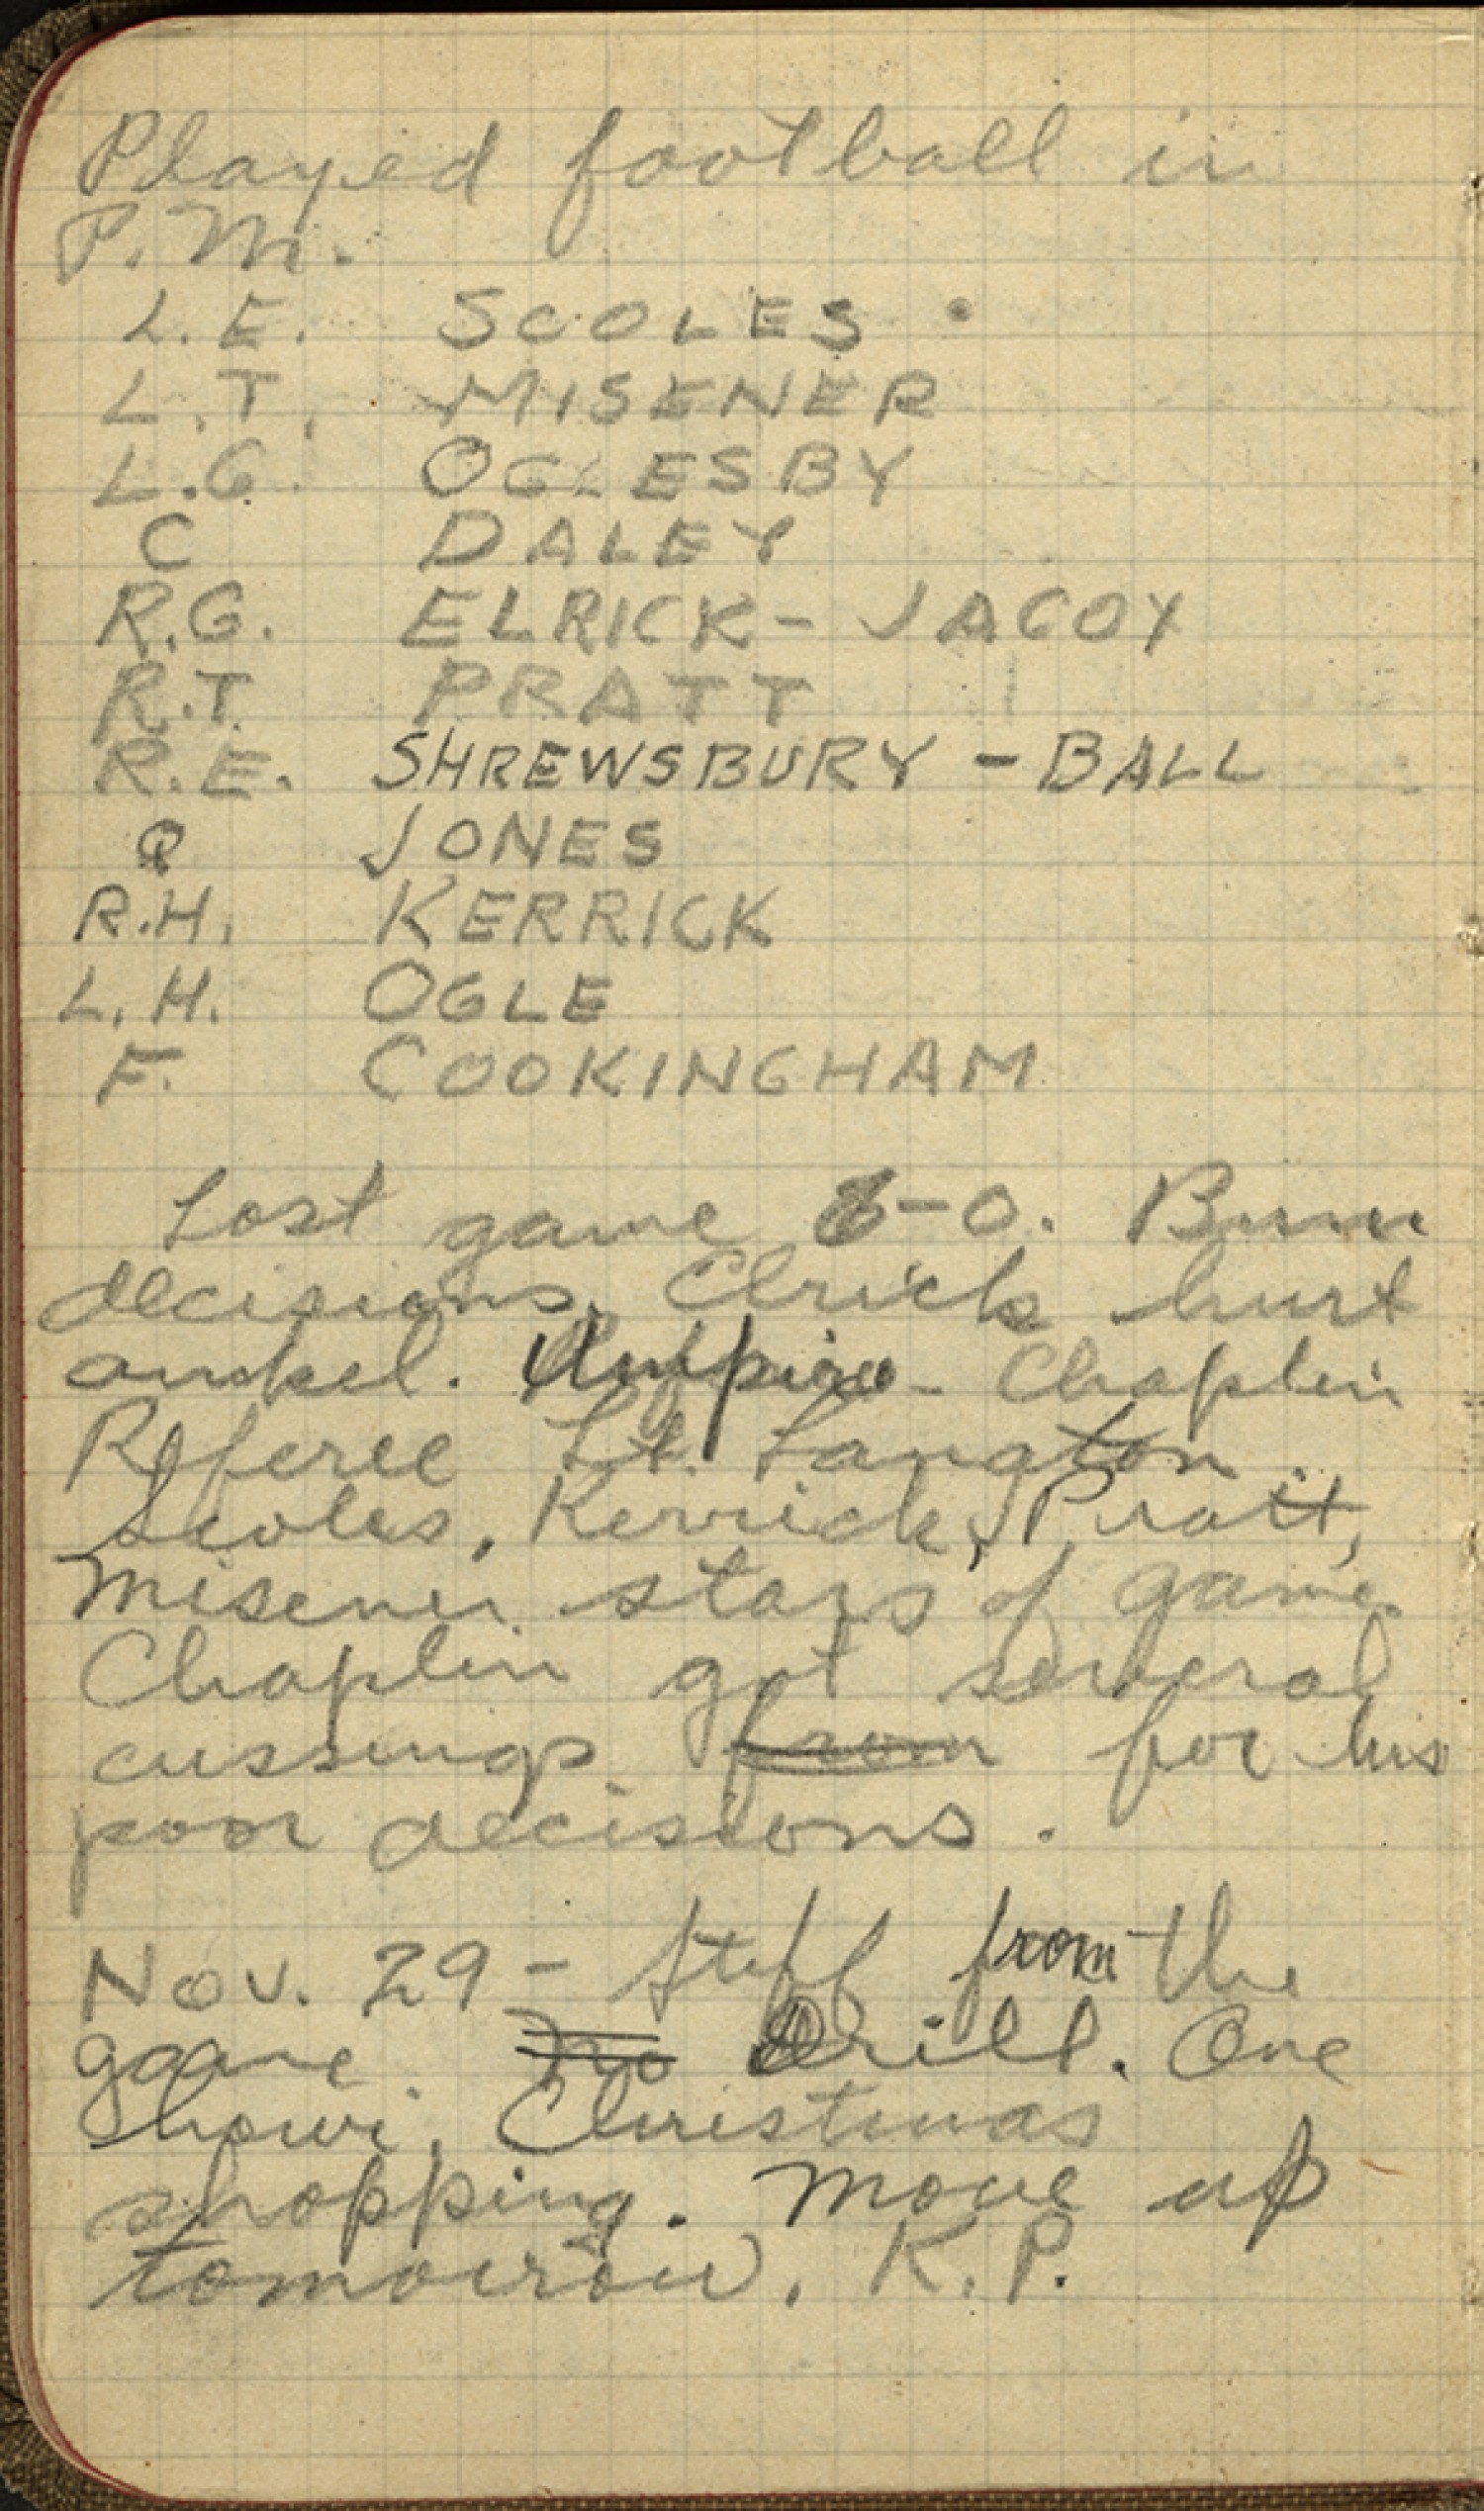 Played football in
P.M.
L.E. SCOLES
L.T. MISENER
L.G. OGLESBY
C DALEY
R.G. ELRICK - JACOY
R.T PRATT
R.E. SHREWSBURY - BALL
Q JONES
R.H. KERRICK
L.H. OGLE
F. COOKINGHAM
Lost game 6-0. Bum
decisions. Elrick hurt
ankel. Umpire - Chaplin
Referee Lt. Langton.
Scoles, Kerrick, Pratt,
Misener stars of game.
Chaplin got several
cussings from for his
poor decisions.
Nov. 29 - Stiff from the
game. No Drill. One
hour. Christmas
shopping. Move up
tomorrow. K.P.